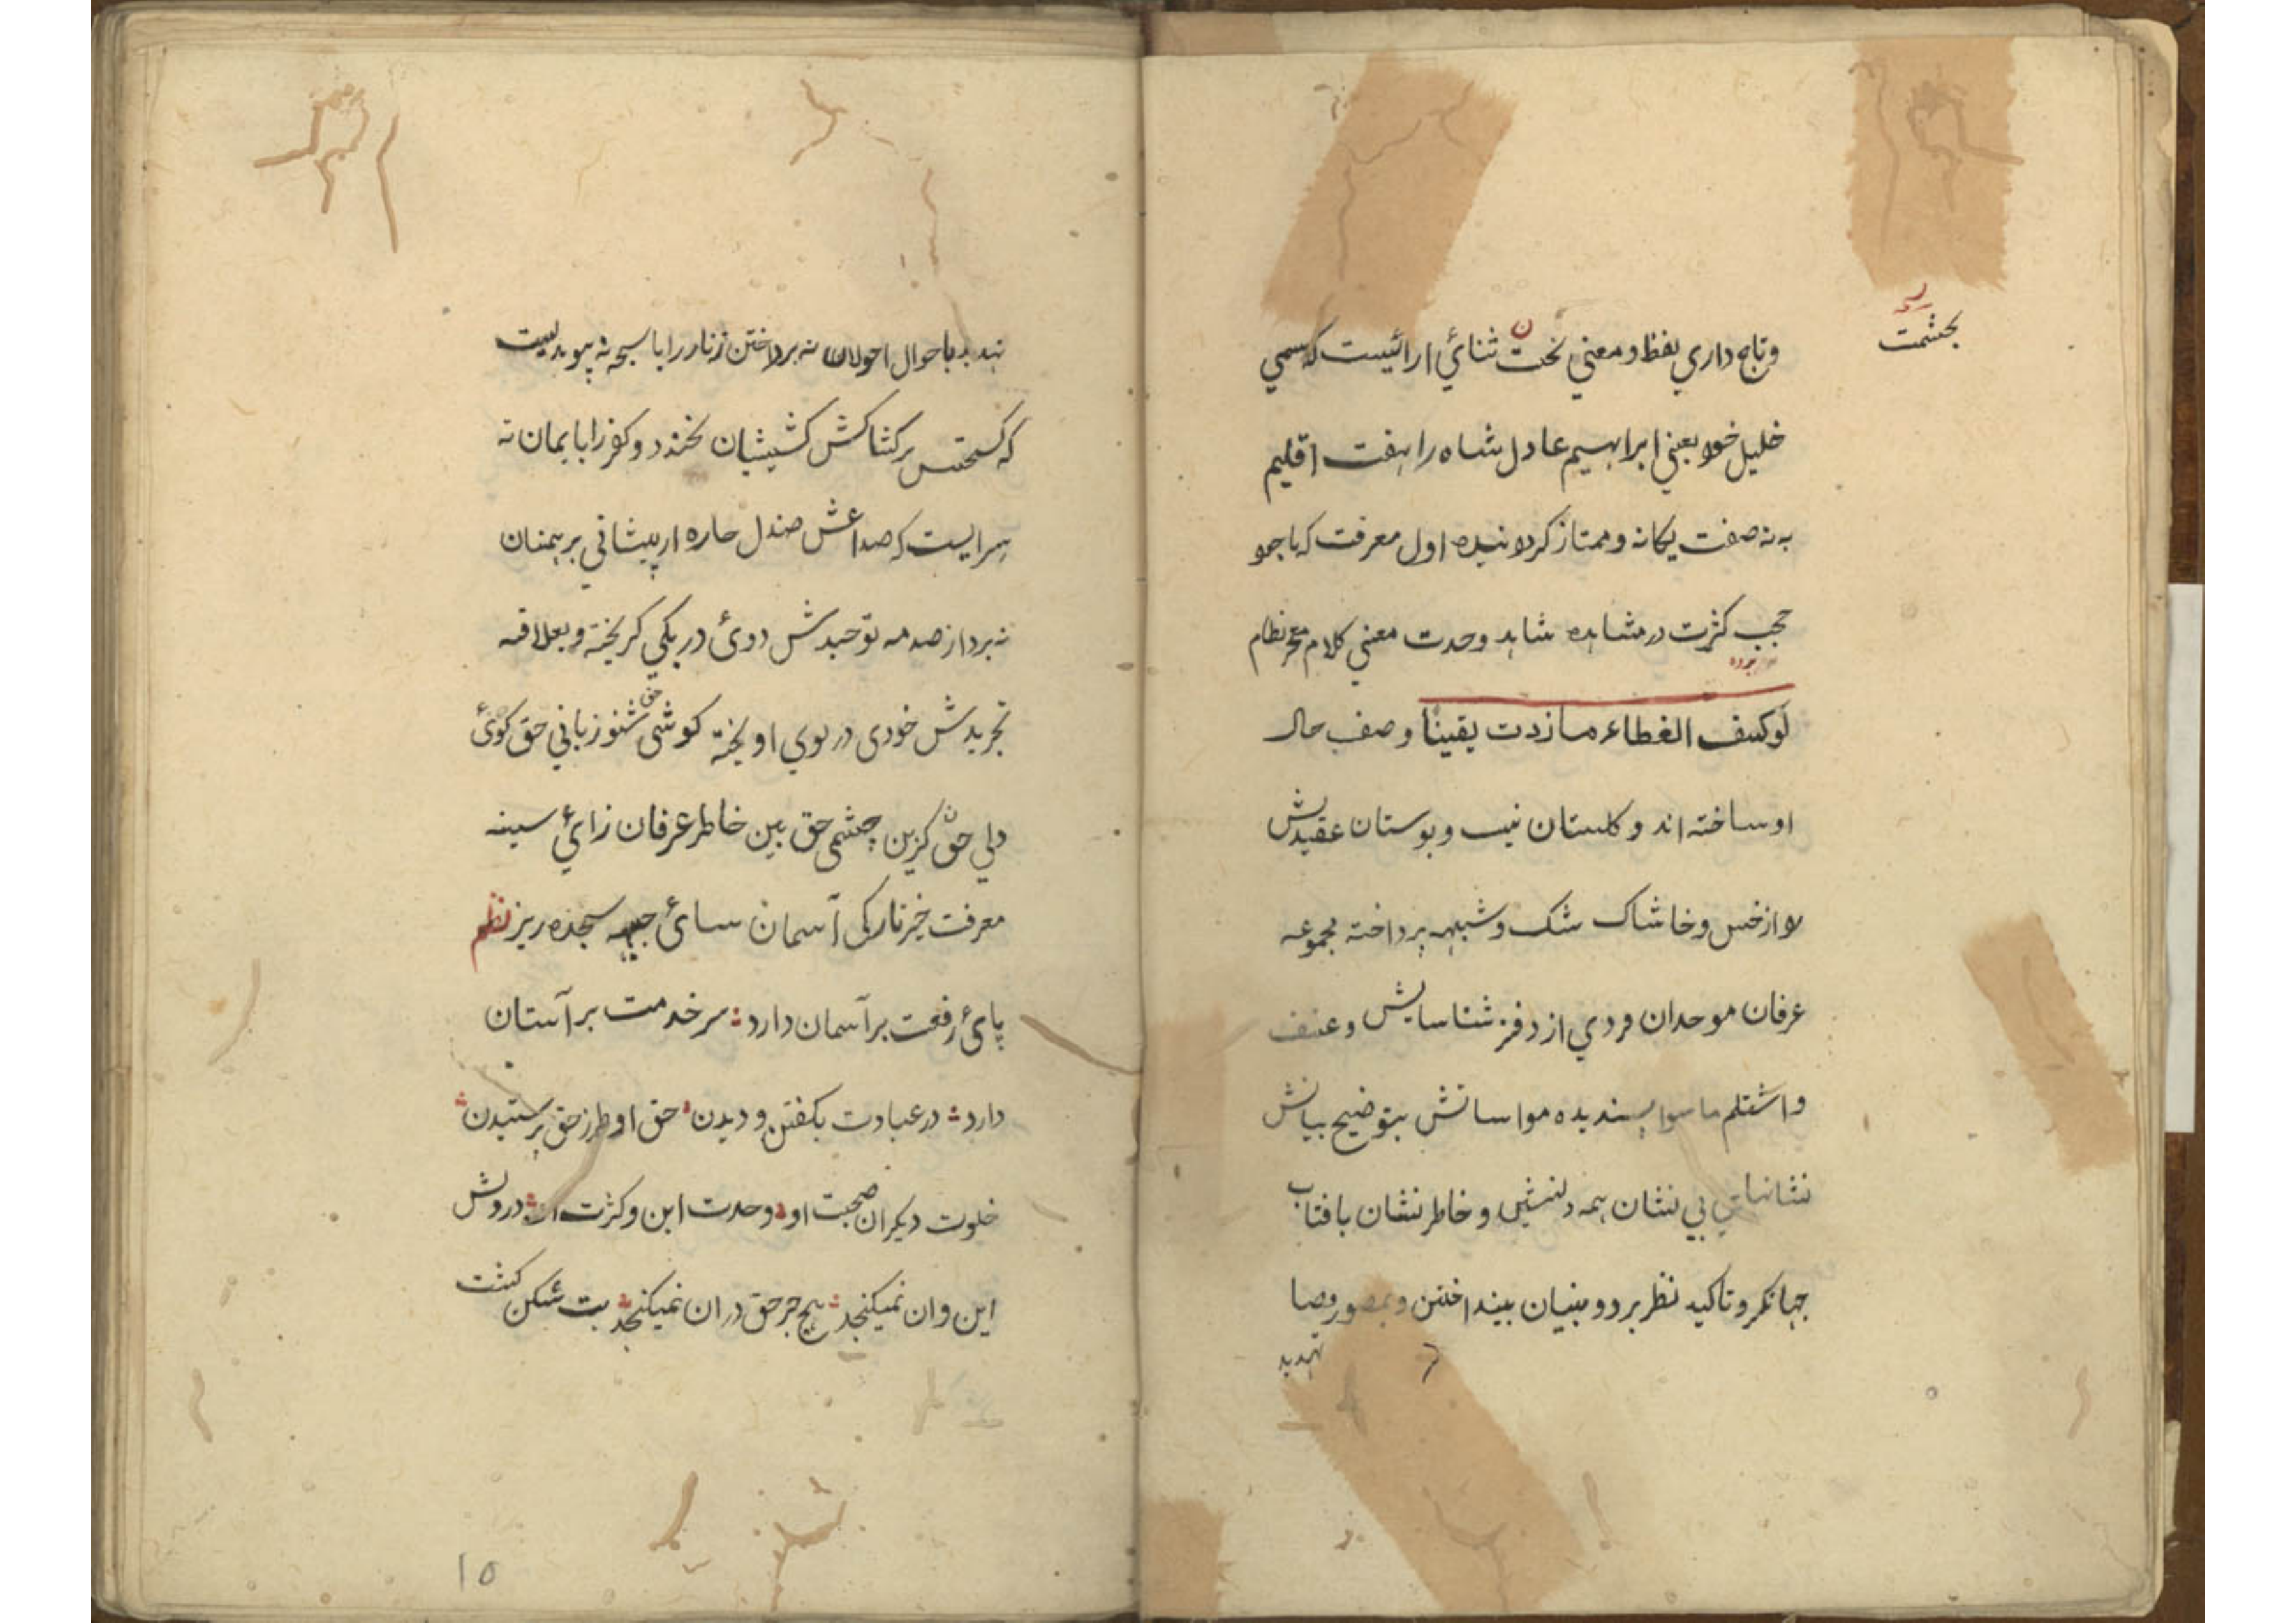 بحشمت
و تاج داري بلفظ و معني تخت ثنائي ارائيست كه سمي
خليل خود يعني ابراهيم عادل شاه را بهفت اقليم
به نه صفت يكانه و ممتاز كردانيده اول معرفت كه با جود
حجب كثرت در مشاهده شاهد وحدت معني كلام معجز نظام
لو كسف الغطاء ما زدت يقيناً وصف حال
او ساخته اند و كلستان نيت و بوستان عقيدتش
را از خس و خاشاك شك و شبهه پرداخته مجموعه
عرفان موحدان فردي از دفتر شناسايش و عنف
و اشتلم ما سوا پسنديده مواساتش بتوضيح بيانش
نشانهاي بي نشان همه دلنشين و خاطر نشان بافتاب
جهانكرد تاكيد نظر بر دو بينيان بينداختن و بمصور صبا
تهديد
تهديد باحوال احولان نه پرداختن زنار را با سبحه نه پيونديست
كه كستنش بر كشاكش كشيشان نخندد و كفر را بايمان نه
سرايست كه صداعش صندل چاره از پيشاني برهمنان
نه برد از صدمه توحيدش دوئ در يكي كريخته و بعلاقه
تجريدش خودي در بوي او يخته كوشي حق شنو زباني حق كوئ
دلي حق كزين چشمي حق بين خاطر عرفان زائ سينه
معرفت خيز تاركي آسمان سائ جبهه سجده ريز نظم
پائ رفعت بر آسمان دارد سر خدمت بر آستان
دارد در عبادت بكفتن و ديدن حق او طرز حق پرستيدن
خلوت ديكران صحبت او وحدت اين و كثرت او در دلش
اين و ان نميكنجد هيچ جز حق در ان نميكنجد بت شكن كشت
۱۵